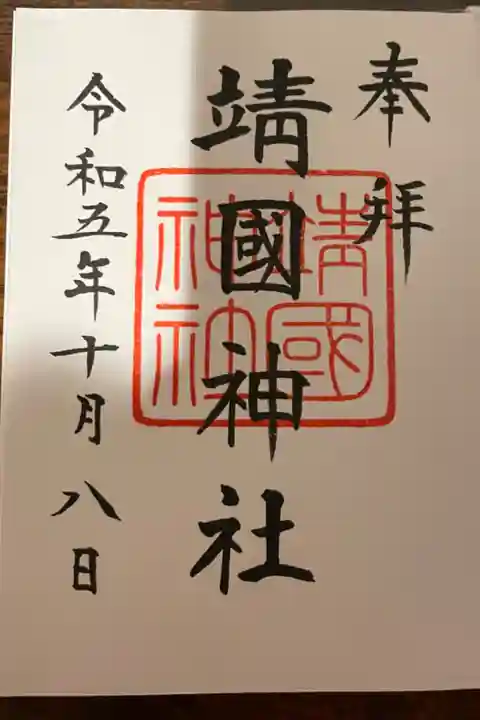 奉拝
靖國神社
靖國神社
令和五年十月八日